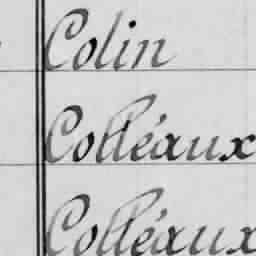 Colin
Colléaux
Colléaux